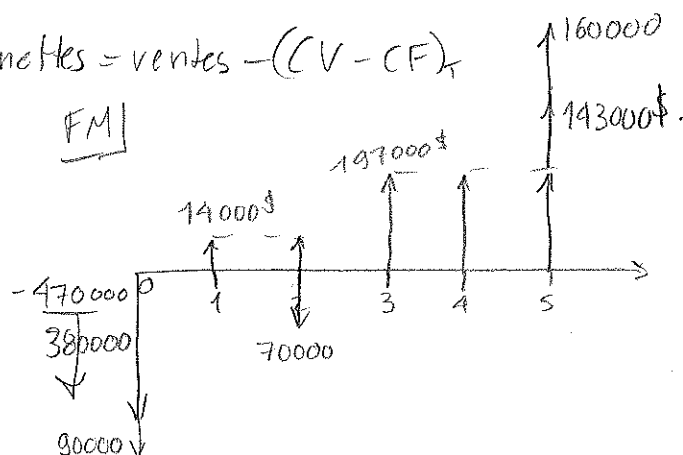 nettes = ventes - (CV - CF)T
160000
FM
143000$.
197000$
14000$
-470000 0 1 2 3 4 5
380000
70000
90000